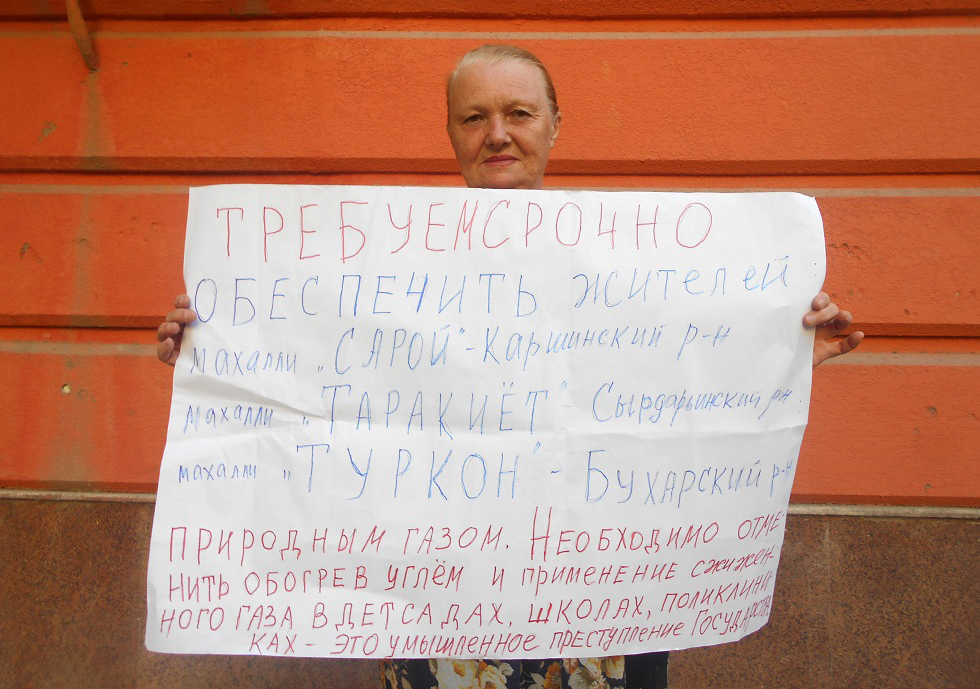 ТРЕБУЕМ СРОЧНО
ОБЕСПЕЧИТЬ жителей
махалли „САРОЙ" - Каршинский р-н
махалли „ТАРАКИЁТ" - Сырдарьинский р-н.
махалли „ТУРКОН" - БУХАРСКИЙ р-н
ПРИРОДНЫМ ГАЗОМ. НЕОБХОДИМО ОТМЕ-
НИТЬ ОБОГРЕВ УГЛЁМ и ПРИМЕНЕНИЕ сжижен-
НОГО ГАЗА В ДЕТСАДАХ, ШКОЛАХ, ПОЛИКЛИНИ-
КАХ - ЭТО УМЫШЛЕННОЕ ПРЕСТУПЛЕНИЕ ГОСУДАРСТВА